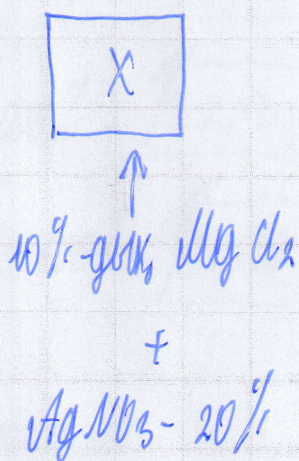 X
10%-дық MgCl₂
+
AgNO₃ - 20%